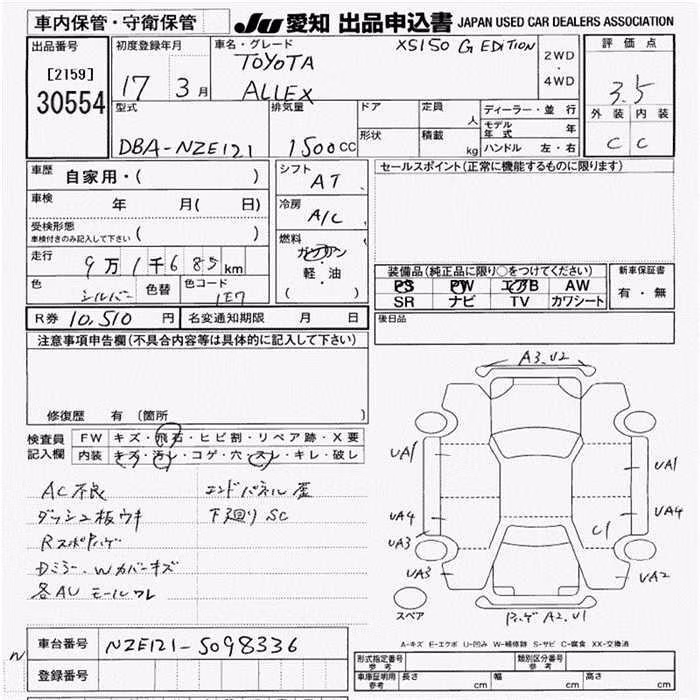 車内保管・守衛保管
JU 愛知 出品申込書 JAPAN USED CAR DEALERS ASSOCIATION
出品番号
[2159]
30554
初度登録年月
17 3月
車名・グレード
TOYOTA
ALLEX
XS150 G EDITION
2WD
・
4WD
評価点
3.5
外装 内装
C C
型式
DBA-NZE121
排気量
1500cc
ドア
形状
定員
人
積載
kg
ディーラー・並行
モデル年式 年
ハンドル 左・右
車歴 自家用・( )
車検 年 月( 日)
受検形態
車検付きのみ記入して下さい ( )
走行 9万1千685km
色 シルバー 色替 色コード 1E7
シフト
AT
冷房
A/C
燃料
ガソリン
軽・油
( )
セールスポイント(正常に機能するものに限ります)
装備品(純正品に限り○をつけてください)
PS PW エアB AW
SR ナビ TV カワシート
新車保証書
有・無
後日品
R券 10,510 円 名変通知期限 月 日
注意事項申告欄(不具合内容等は具体的に記入して下さい)
修復歴 有 〔箇所 〕
検査員
記入欄
FW キズ・飛石・ヒビ割・リペア跡・X要
内装 キズ・汚レ・コゲ・穴・スレ・キレ・破レ
AC不良
ダッシュ板ウキ
Rスポハゲ
Dミラー、Wカバーキズ
各AU モールワレ
エンドパネル歪
下廻りSC
A3、U2
UA1
UA1
UA4
UA4
UA3
C1
UA3
UA2
スペア
ハゲ A2、U1
A-キズ E-エクボ U-凹み W-補修跡 S-サビ C-腐食 XX-交換済
N
車台番号 NZE121-5098336
登録番号
形式指定番号
参考
類別区分番号
参考
車庫証明用
参考
長さ cm 幅 cm 高さ cm